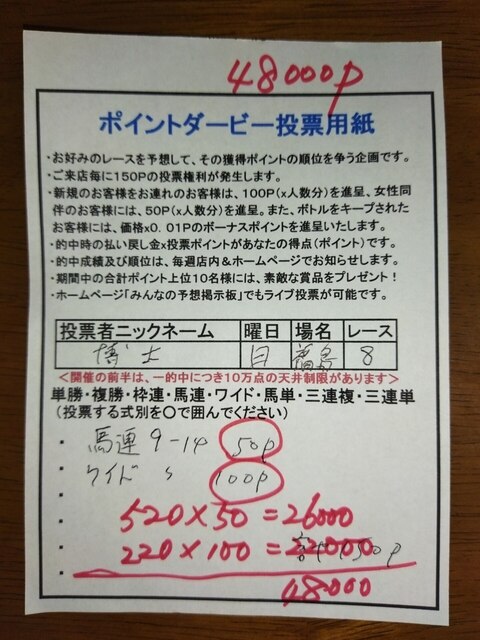 48000p
ポイントダービー投票用紙
・お好みのレースを予想して、その獲得ポイントの順位を争う企画です。
・ご来店毎に150Pの投票権利が発生します。
・新規のお客様をお連れのお客様は、100P(x人数分)を進呈、女性同
件のお客様には、50P(x人数分)を進呈。また、ボトルをキープされた
お客様には、価格x0.01Pのボーナスポイントを進呈いたします。
・的中時の払い戻し金x投票ポイントがあなたの得点(ポイント)です。
・的中成績及び順位は、毎週店内&ホームページでお知らせします。
・期間中の合計ポイント上位10名様には、素敵な賞品をプレゼント!
・ホームページ「みんなの予想掲示板」でもライブ投票が可能です。
投票者ニックネーム 曜日 場名 レース
博士 日 福島 8
<開催の前半は、一的中につき10万点の天井制限があります>
単勝・複勝・枠連・馬連・ワイド・馬単・三連複・三連単
(投票する式別を〇で囲んでください)
・ 馬連 9-14 50p
・ ワイド 〃 100p
・
・ 520×50=26000
・ 220×100=22000 150p
・ 48000